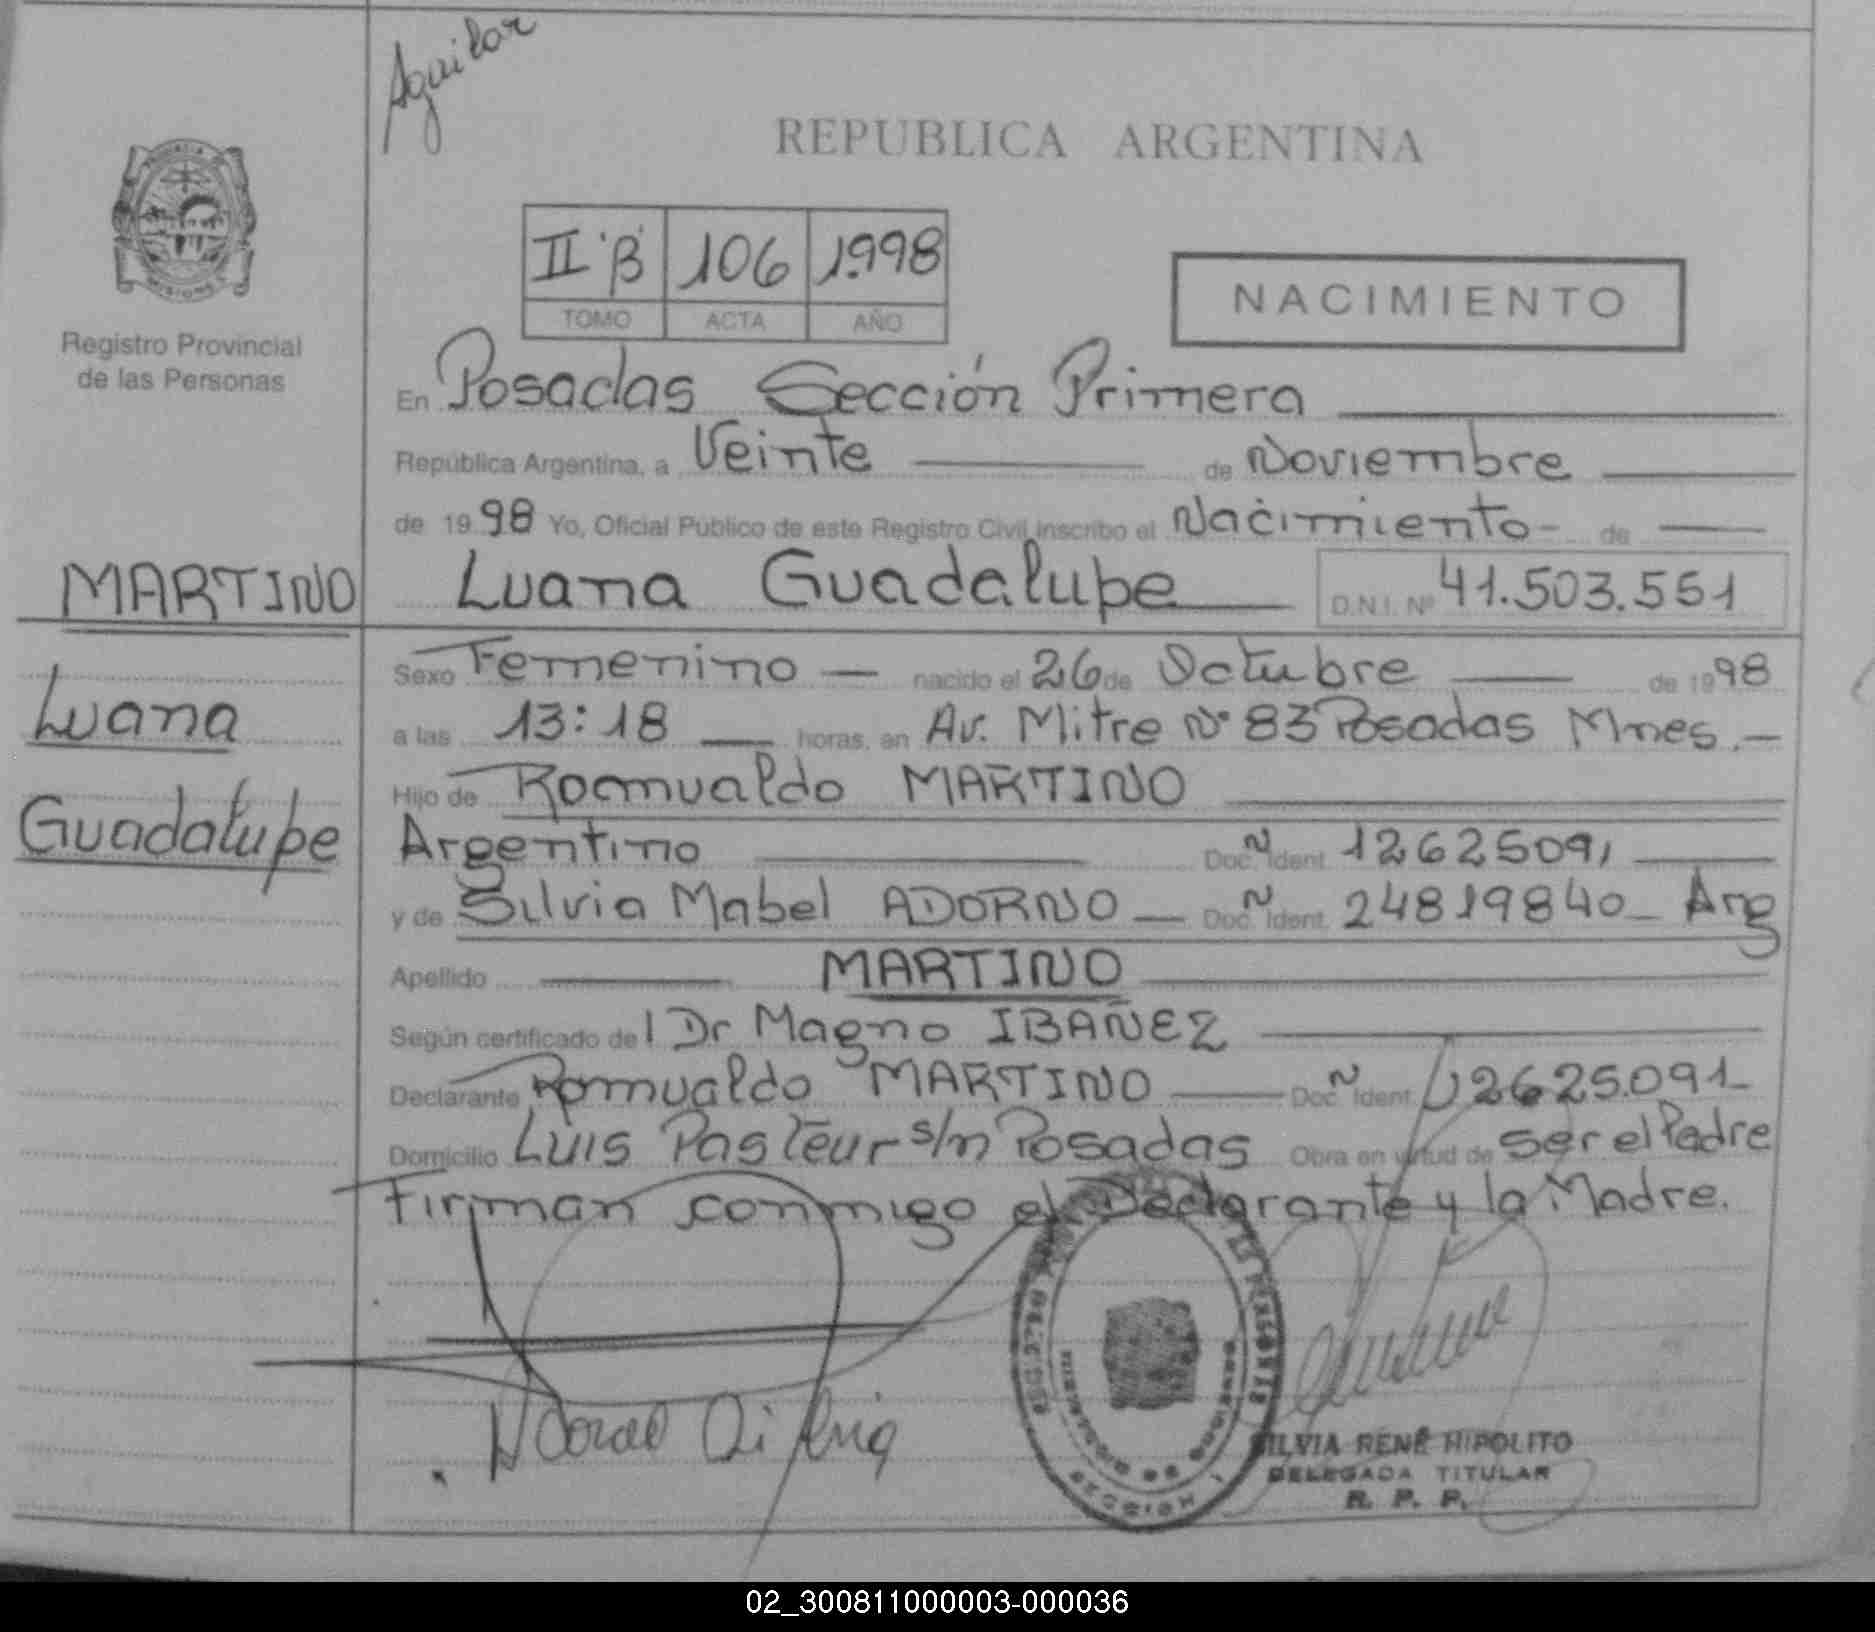 Aguilar
REPUBLICA ARGENTINA
II "B" 106 1.998
TOMO ACTA AÑO
NACIMIENTO
Registro Provincial
de las Personas
En Posadas Sección Primera
República Argentina, a Veinte de Noviembre
de 19 98 Yo, Oficial Público de este Registro Civil inscribo el Nacimiento - de
MARTINO
Luana Guadalupe D.N.I. Nº 41.503.551
Luana
Guadalupe
Sexo Femenino — nacido el 26 de Octubre de 19 98
a las 13:18 horas, en Av. Mitre Nº 83 Posadas Mnes.-
Hijo de Romualdo MARTINO
Argentino Doc. Ident. 12625091
y de Silvia Mabel ADORNO — Doc. Ident. 24819840 - Arg
Apellido MARTINO
Según certificado del Dr Magno IBAÑEZ
Declarante Romualdo MARTINO Doc. Ident. 12625.091-
Domicilio Luis Pasteur s/n Posadas Obra en virtud de ser el Padre
Firman conmigo el Declarante y la Madre.
SILVIA RENÉ HIPOLITO
DELEGADA TITULAR
R. P. P.
02_300811000003-000036